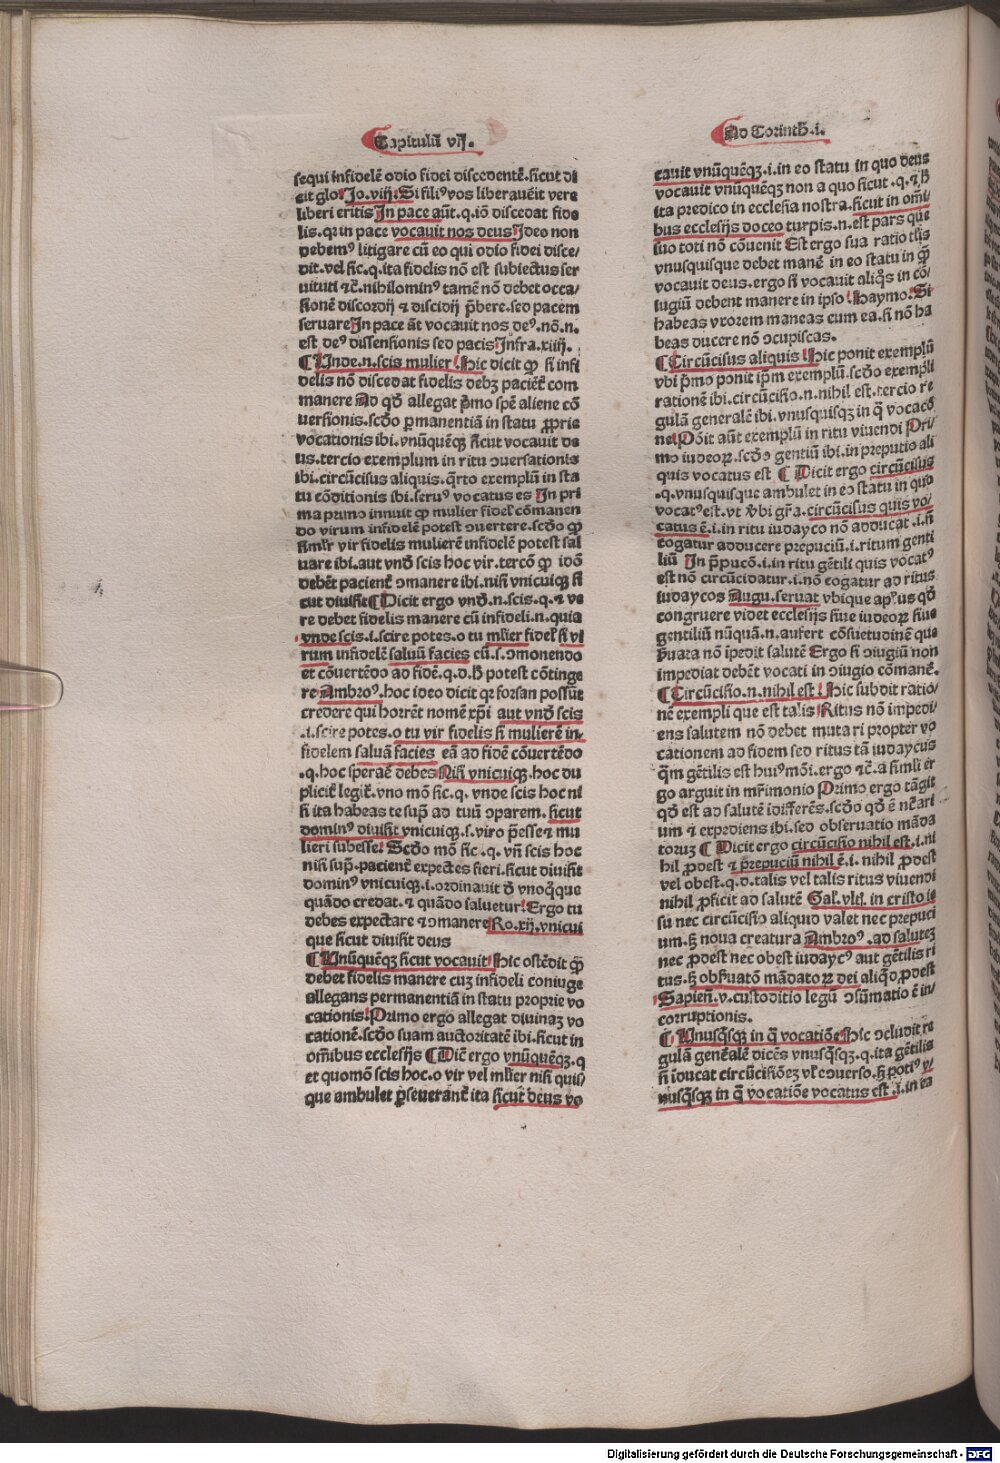 Capitulū vij.
sequi infidelē odio fidei discedentē.sicut di
cit glo Jo.viij. Si filiꝰ vos liberauerit vere
liberi eritis In pace aūt.q.iō discedat fide
lis.qꝛ in pace vocauit nos deus Ideo non
debemꝰ litigare cū eo qui odio fidei disce/
dit.vel sic.q.ita fidelis nō est subiectus ser
uituti ⁊c̄.nihilominꝰ tamē nō debet occa/
sionē discordij ⁊ discidij p̄bere.sed pacem
seruare In pace āt vocauit nos deꝰ.nō.n.
est deꝰ dissensionis sed pacis Infra.xiiij.
¶ Unde.n.scis mulier Hic dicit ꝙ si infi
delis nō discedat fidelis debꝫ pacient̄ com
manere Ad qd̄ allegat p̄mo spē aliene cō
uersionis.scd̄o ꝑmanentiā in statu ꝓprie
vocationis ibi.vnūquēqꝫ sicut vocauit de
us.tercio exemplum in ritu ↄuersationis
ibi.circūcisus aliquis.q̄rto exemplū in sta
tu cōditionis ibi.seruꝰ vocatus es In pri
ma primo innuit ꝙ mulier fidel̄ cōmanen
do virum infidelē potest ↄuertere.scd̄o ꝙ
simil̄r vir fidelis mulierē infidelē potest sal
uare ibi.aut vnd̄ scis hoc vir.tercō ꝙ ideo
debēt pacient̄ ↄmanere ibi.nisi vnicuiqꝫ si
cut diuisit ¶ Dicit ergo vnd̄.n.scis.q.⁊ ve
re debet fidelis manere cū infideli.n.quia
vnde scis.i.scire potes.o tu ml̄ier fidel̄ si vi
rum infidelē saluū facies cū.s.ↄmonendo
et cōuertēdo ad fidē.q.d.h̄ potest cōtinge
re Ambroꝰ.hoc ideo dicit qꝛ forsan possūt
credere qui horrēt nomē xp̄i aut vnd̄ scis
.i.scire potes.o tu vir fidelis si mulierē in-
fidelem saluā facies eā ad fidē cōuertēdo
.q.hoc sperare debes Nisi vnicuiqꝫ.hoc du
plicit̄ legit̄.vno mō sic.q.vnde scis hoc ni
si ita habeas te suꝑ ad tuū ↄparem.sicut
dominꝰ diuisit vnicuiqꝫ.s.viro p̄esse ⁊ mu
lieri subesse Scd̄o mō sic.q.vn̄ scis hoc
nisi suꝑ.pacient̄ expectes fieri.sicut diuisit
dominꝰ vnicuiqꝫ.i.ordinauit d̄ vnoq̄que
quādo credat.⁊ quādo saluetur Ergo tu
debes expectare ⁊ ↄmanere Ro.xij.vnicui
que sicut diuisit deus
¶ Unūquēqꝫ sicut vocauit Hic ostēdit ꝙ
debet fidelis manere cuꝫ infideli coniuge
allegans permanentiā in statu proprie vo
cationis Primo ergo allegat diuinaꝫ vo
cationē.scd̄o suam auctoritatē ibi.sicut in
om̄ibus ecclesijs ¶ Dic̄ ergo vnūquēqꝫ.q
et quomō scis hoc.o vir vel ml̄ier nisi quis/
que ambulet ꝑseuerant̄ ita sicut deus vo
Ad Corinth.i.
cauit vnūquēqꝫ.i.in eo statu in quo deus
vocauit vnūquēqꝫ non a quo sicut.q.⁊ h̄
ita predico in ecclesia nostra.sicut in om̄i/
bus ecclesijs doceo turpis.n.est pars que
suo toti nō cōuenit Est ergo sua ratio tl̄is
vnusquisque debet manē in eo statu in ꝙ̄
vocauit deus.ergo si vocauit aliq̄s in cō/
iugiū debent manere in ipso Haymo Si
habeas vxorem maneas cum ea.si nō ha
beas ducere nō ↄcupiscas.
¶ Circūcisus aliquis Hic ponit exemplū
vbi p̄mo ponit ip̄m exemplū.scd̄o exempli
rationē ibi.circūcisio.n.nihil est.tercio re
gulā generalē ibi.vnusquisqꝫ in q̄ vocacō
ne Pōit aūt exemplū in ritu viuendi Pri
mo iudeoꝝ.scd̄o gentiū ibi.in preputio ali
quis vocatus est ¶ Dicit ergo circūcisus
.q.vnusquisque ambulet in eo statu in quo
vocatꝰ est.vt v̄bi gr̄a.circūcisus quis vo/
catus ē.i.in ritu iudayco nō adducat.i.n̄
cogatur adducere prepuciū.i.ritum genti
liū In p̄pucō.i.in ritu gētili quis vocatꝰ
est nō circūcidatur.i.nō cogatur ad ritus
iudaycos Augu.seruat vbique apl̄us qd̄
congruere videt ecclesijs siue iudeoꝝ siue
gentiliū nūquā.n.aufert cōsuetudinē que
p̄uara nō ipedit salutē Ergo si ↄiugiū non
impediat debēt vocati in ↄiugio cōmanē.
¶ Circūcisio.n.nihil est Hic subdit ratio/
nē exempli que est talis Ritus nō impedi/
ens salutem nō debet mutari propter vo
cationem ad fidem sed ritus tā iudaycus
q̄m gētilis est huiꝰmōi.ergo ⁊c̄.a simili er
go arguit in mr̄imonio Primo ergo tāgit
qd̄ est ad salutē idifferēs.scd̄o qd̄ ē nc̄ari
um ⁊ expediens ibi.sed obseruatio māda
toruꝫ ¶ Dicit ergo circūcisio nihil est.i.ni
hil ꝓdest ⁊ p̄repuciū nihil ē.i. nihil ꝓdest
vel obest.q.d.talis vel talis ritus viuendi
nihil ꝓficit ad salutē Gal.vlti. in cristo ie
su nec circūcisio aliquid valet nec prepuci
um.ꝫ noua creatura Ambroꝰ.ad saluteꝫ
nec ꝓdest nec obest iudaycꝰ aut gētilis ri
tus.ꝫ obẜuatō mādatoꝝ dei aliq̄d ꝓdest
Sapien̄.v.custoditio legū ↄsūmatio ē in/
corruptionis.
¶ Unusq̄sqꝫ in q̄ vocatiōe Hic ↄcludit re
gulā genēalē dicēs vnusq̄sqꝫ.q.ita gētilis
si iducat circūcisiōeꝫ vl̄ ecↄuerso.ꝫ potiꝰ v/
nusq̄sqꝫ in q̄ vocatiōe vocatus est.i.in ea
Digitalisierung gefördert durch die Deutsche Forschungsgemeinschaft - DFG